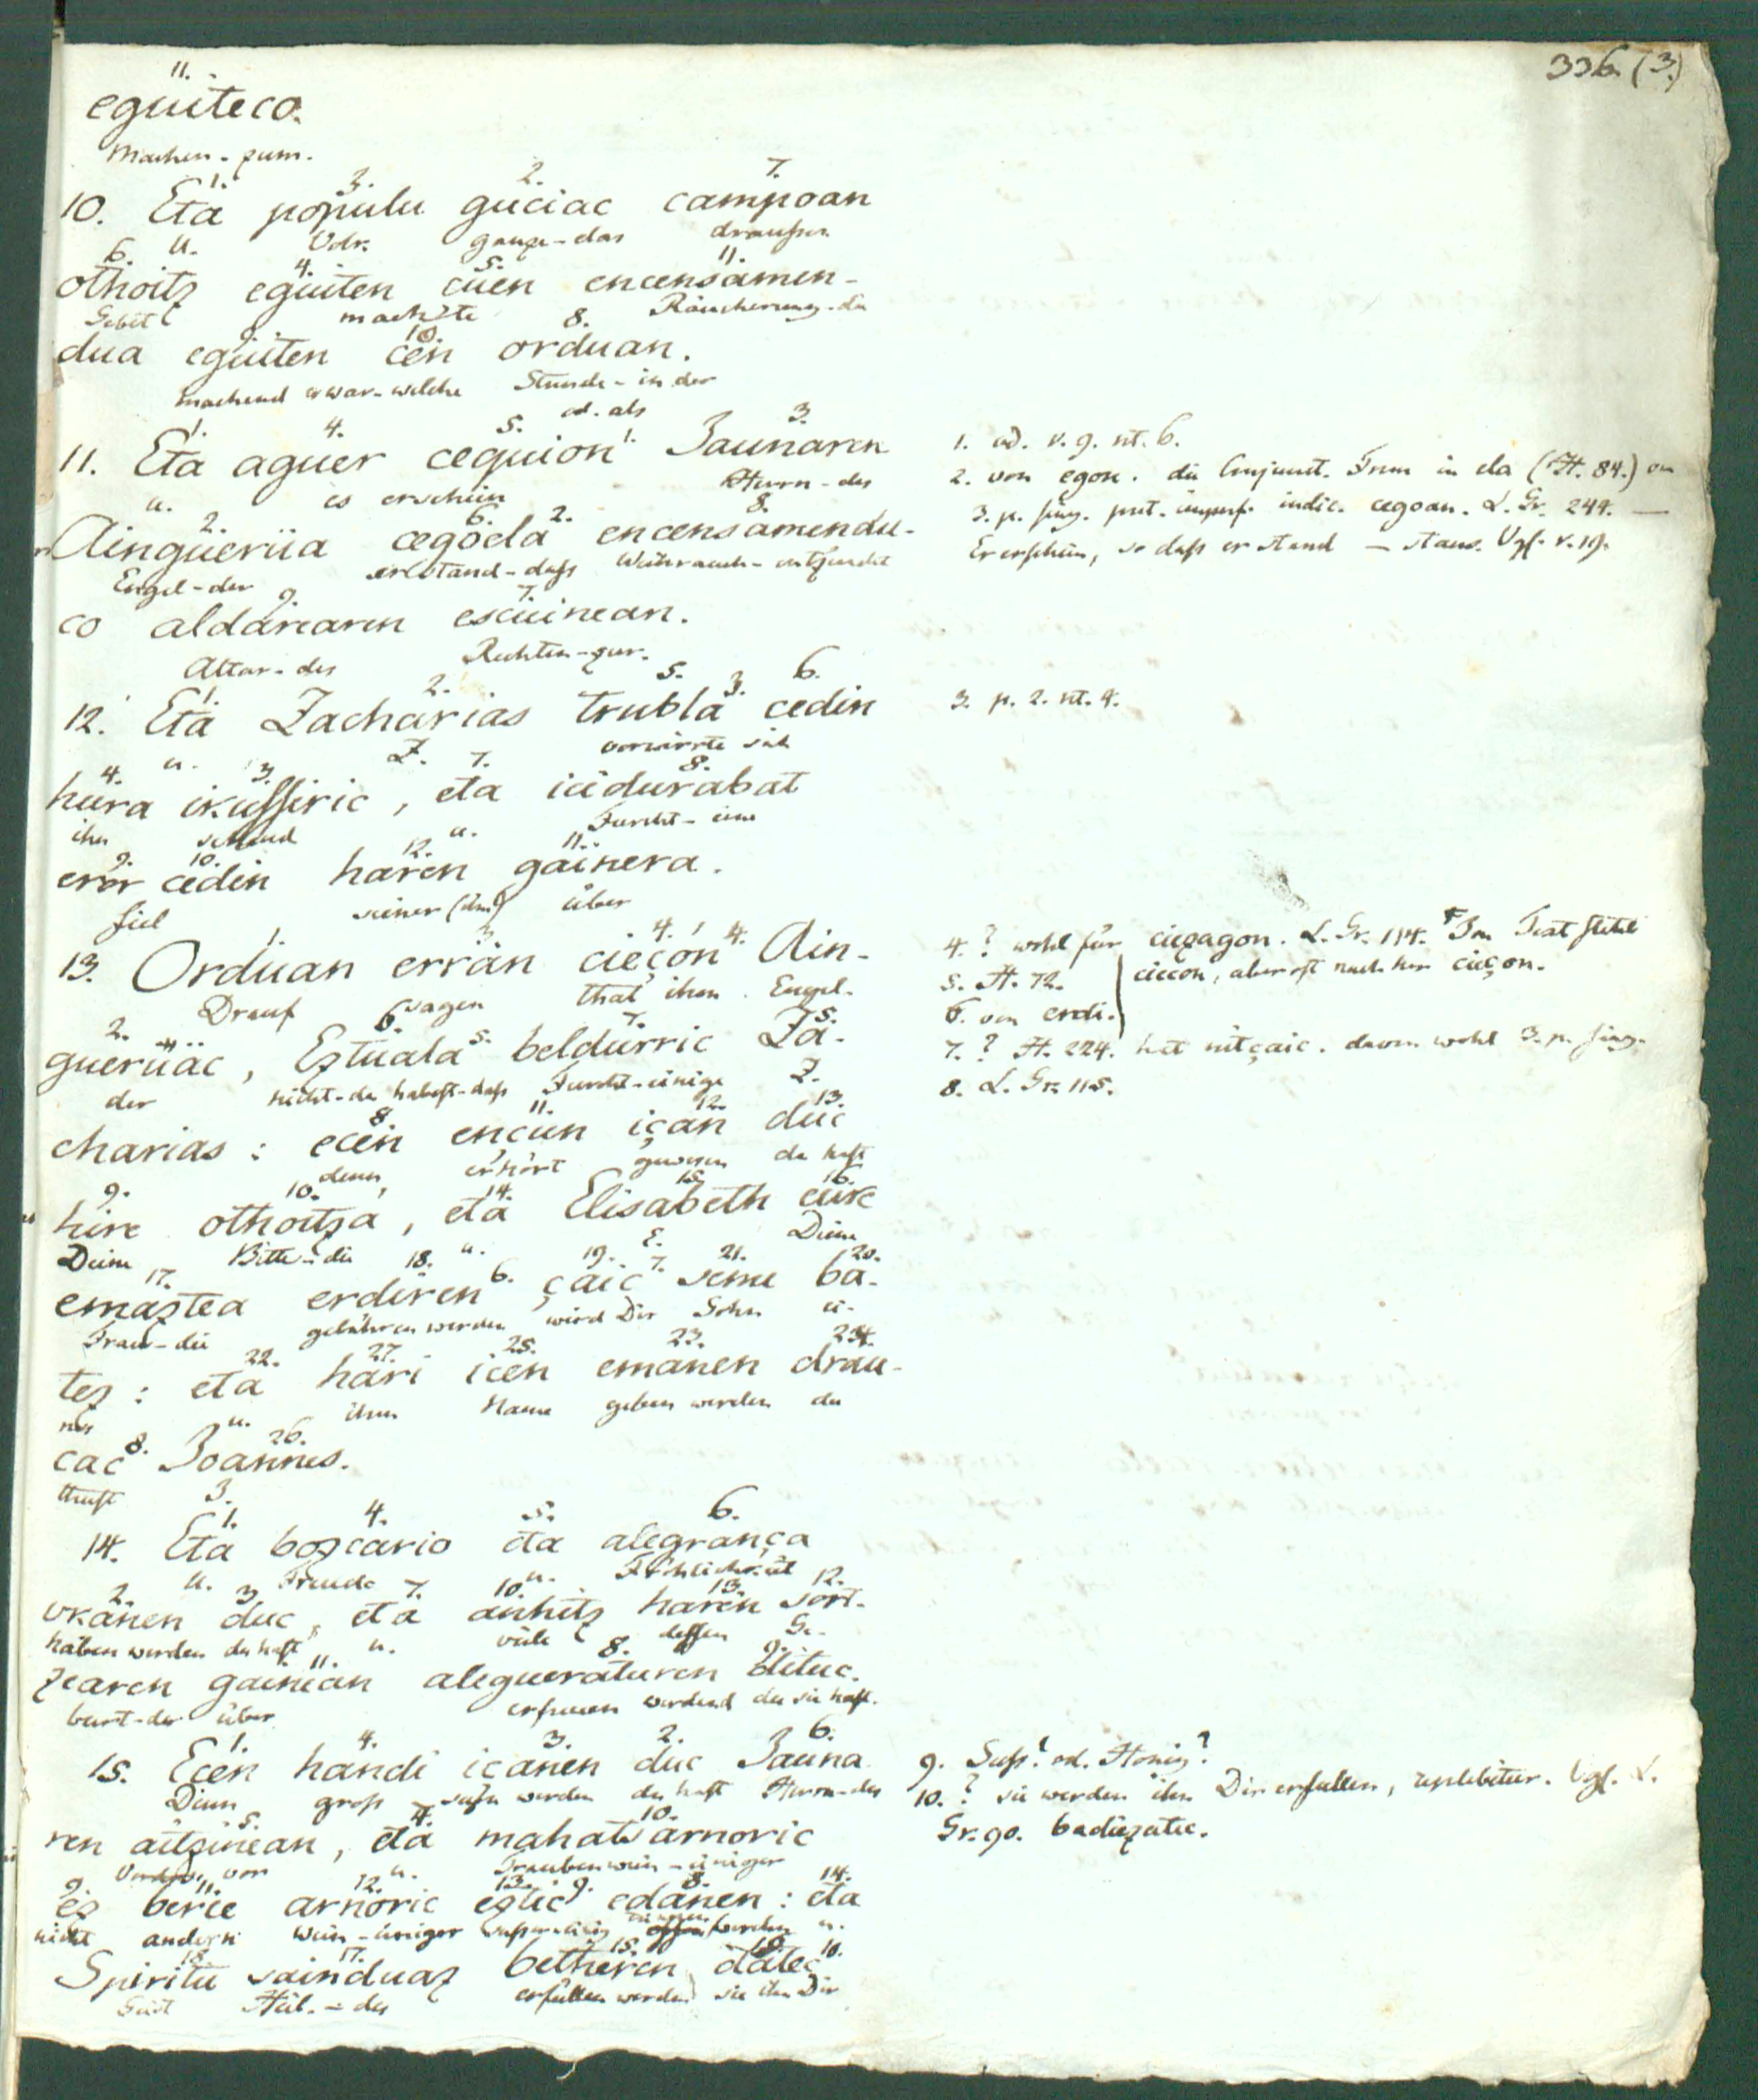 336. (3.)
11.
eguiteco.
Machen-zum.
1. 3. 2. 7.
10. Eta populu guciac campoan
u. Volk ganze-das draussen
6. 4. 5. 11.
othoitz eguiten cüen encensamen-
Gebet machte Räucherung-die
9. 10. 8.
dua eguiten cen orduan.
machend er war-welche Stunde-in der
od. als
1. 4. 5. 1. 3.
11. Eta aguer ceguion Jaunaren
u. es erschien Herrn-des
2. 6. 2. 8.
Aingueriia cegoela encensamendu-
Engel-der er stand-dass Weihrauch-
9. 7.
co aldarearen escuinean.
Altar-des Rechten-zur.
1. 2. 5. 3. 6.
12. Eta Zacharias trubla cedin
u. Z. verwirrte sich
4. 3. 7. 8.
hura ikussiric, eta icidurabat
ihn sehend u. Furcht-eine
9. 10. 12. 11.
eror cedin haren gainera.
fiel seiner (ihm) über
1. 3. 4. 4.
13. Orduan erran cieçon Ain-
Drauf sagen that ihm Engel-
2. 6. 5. 7. 5.
gueruac, Eztuala beldurric Za-
der nicht-du habest-dass Furcht-einige Z.
8. 11. 12. 13.
charias: ecen ençun içan duc
denn, erhört gewesen du hast
9. 10. 14. 15. 16.
hire othoitza, eta Elisabeth eure
Deine Bitte-die u. E. Deine
17. 18. 6. 19. 7. 21. 20.
emaztea erdiren çaic seme ba-
Frau-die gebähren werden wird Dir Sohn ei-
22. 27. 25. 23. 24.
tez: eta hari icen emanen drau-
nes u. ihm Name geben werden du
8. 26.
cac Joannes.
thust
1. 4. 5. 6.
14. Eta bozcario eta alegrança
u. Freude u. Fröhlichkeit
2. 3. 7. 10. 13. 12.
ukanen duc, eta anhitz haren sort-
haben werden du hast u. viele dessen Ge-
11. 8. 9.
zearen gainean alegueraturen dituc.
burt-der über erfreuen werdend du sie hast.
1. 4. 3. 2. 6.
15. Ecen handi içanen duc Jauna
Denn gross sein werden du hast Herrn-des
5. 7. 10.
ren aitzinean, eta mahatsarnoric
vor u. Traubenwein-einiger
9. 11. 12. 13. 9. 8. 14.
ez berce arnoric eztic edanen: eta
nicht andern Wein-einiger werden u.
18. 17. 15. 16. 10.
Spiritu sainduaz betheren datec
Geist Heil.-des erfüllen werden sie ihn Dir
1. ad. v. 9. nt. 6.
2. von egon. die Conjunct. Form in ela (H. 84.) on
3. p. sing. prt. imperf. indic. cegoan. L. Gr. 244. —
Er erschien, so dass er stand — stans. Vgl. v. 19.
3. p. 2. nt. 4.
4. ? wohl für ciezagon. L. Gr. 114. Im Text steht
cieccon, aber oft nachher cieçon.
5. H. 72.
6. von erdi.
7. ? H. 224. hat nitçaic. davon wohl 3. p. sing.
8. L. Gr. 115.
9. Süss? od. Honig?
10. ? sie werden ihn Dir erfüllen, replebitur. Vgl. L.
Gr. 90. badiezatec.